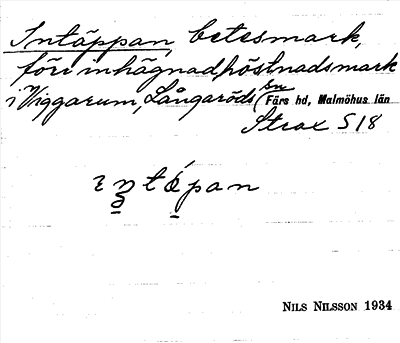 Intäppan, betesmark,
förr inhägnad höstnadsmark
i Viggarum, Långaröds sn Färs hd, Malmöhus län
Strax S 18
NILS NILSSON 1934